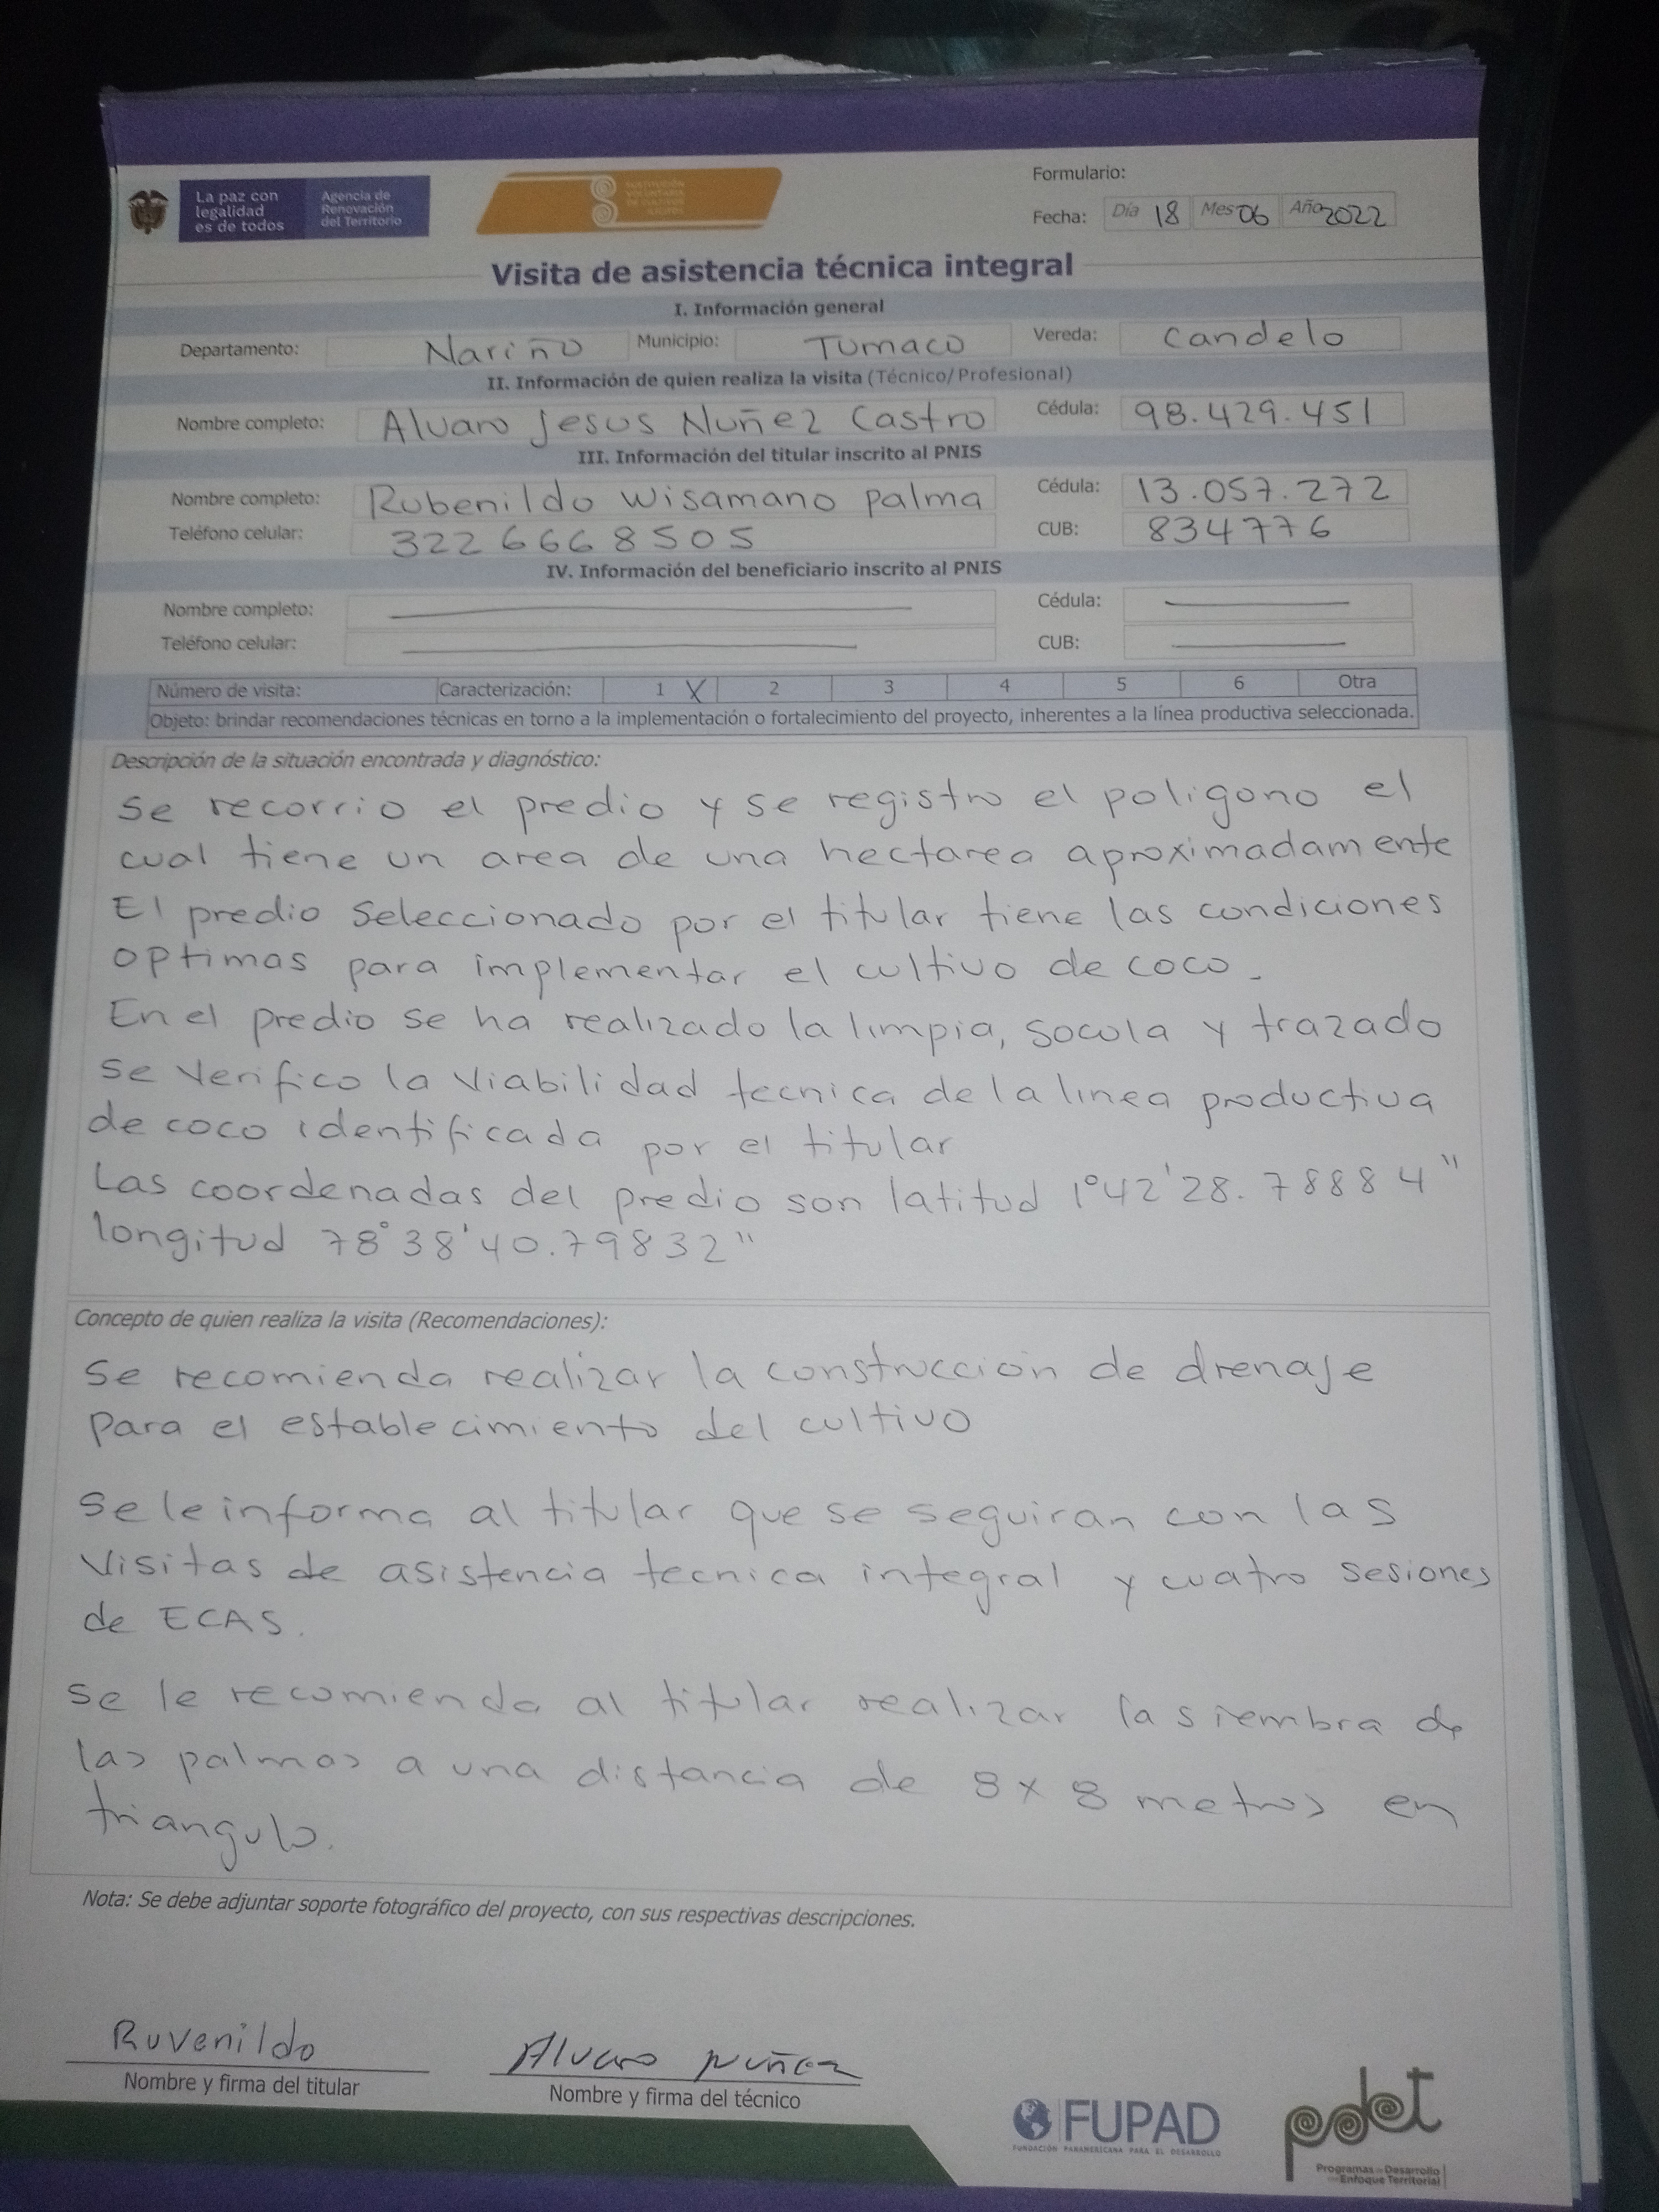 La paz con
legalidad
es de todos
Agencia de
Renovación
del Territorio
SUSTITUCIÓN
VOLUNTARIA
DE CULTIVOS
ILÍCITOS
Formulario:
Fecha: Día 18 Mes 06 Año 2022
Visita de asistencia técnica integral
I. Información general
Departamento: Nariño Municipio: Tumaco Vereda: Candelo
II. Información de quien realiza la visita (Técnico/Profesional)
Nombre completo: Alvaro Jesus Nuñez Castro Cédula: 98.429.451
III. Información del titular inscrito al PNIS
Nombre completo: Rubenildo Wisamano Palma Cédula: 13.057.272
Teléfono celular: 3226668505 CUB: 834776
IV. Información del beneficiario inscrito al PNIS
Nombre completo: Cédula:
Teléfono celular: CUB:
Número de visita: Caracterización: 1 X 2 3 4 5 6 Otra
Objeto: brindar recomendaciones técnicas en torno a la implementación o fortalecimiento del proyecto, inherentes a la línea productiva seleccionada.
Descripción de la situación encontrada y diagnóstico:
Se recorrio el predio y se registro el poligono el
cual tiene un area de una hectarea aproximadamente
El predio seleccionado por el titular tiene las condiciones
optimas para implementar el cultivo de coco.
En el predio se ha realizado la limpia, socola y trazado
se verifico la viabilidad tecnica de la linea productiva
de coco identificada por el titular
Las coordenadas del predio son latitud 1°42'28.78884"
longitud 78°38'40.79832"
Concepto de quien realiza la visita (Recomendaciones):
Se recomienda realizar la construccion de drenaje
para el establecimiento del cultivo
Se le informa al titular que se seguiran con las
visitas de asistencia tecnica integral y cuatro sesiones
de ECAS.
Se le recomienda al titular realizar la siembra de
las palmas a una distancia de 8 x 8 metros en
triangulo.
Nota: Se debe adjuntar soporte fotográfico del proyecto, con sus respectivas descripciones.
Ruvenildo
Nombre y firma del titular
Alvaro Nuñez
Nombre y firma del técnico
FUPAD
FUNDACIÓN PANAMERICANA PARA EL DESARROLLO
pdet
Programas de Desarrollo
con Enfoque Territorial